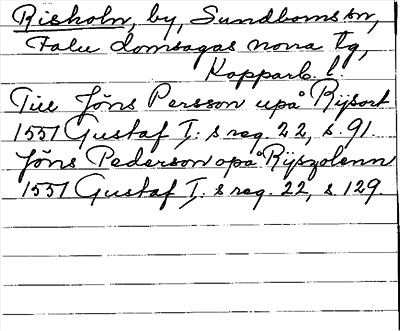 Risholn, by, Sundborns sn,
Falu domsagas norra tg,
Kopparb. l.
Till Jöns Persson upå Rijsort
1551 Gustaf I: s reg. 22, s. 91.
Jöns Pederson opå Rijszolenn
1551 Gustaf I. s reg. 22, s. 129.